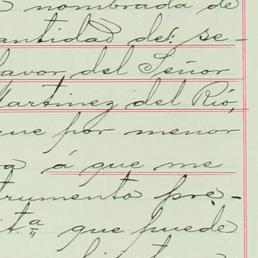 nombrada de
antidad de: se-
favor del Señor
Martinez del Rió,
que por menor
a á que me
trumento pre-
it.ª que puede